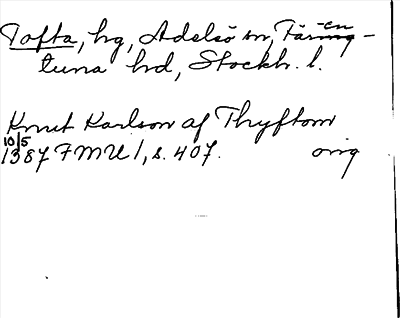 Tofta, hg, Adelsö sn, Fären-
tuna hd, Stockh. l.
Knut Karlson af Thyftom
10/5
1387 FMU 1, s. 407. orig